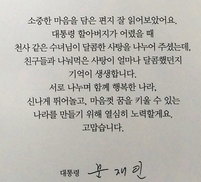 소중한 마음을 담은 편지 잘 읽어보았어요.
대통령 할아버지가 어렸을 때
천사 같은 수녀님이 달콤한 사탕을 나누어 주셨는데,
친구들과 나눠먹은 사탕이 얼마나 달콤했던지
기억이 생생합니다.
서로 나누며 함께 행복한 나라,
신나게 뛰어놀고, 마음껏 꿈을 키울 수 있는
나라를 만들기 위해 열심히 노력할게요.
고맙습니다.
대통령 문재인